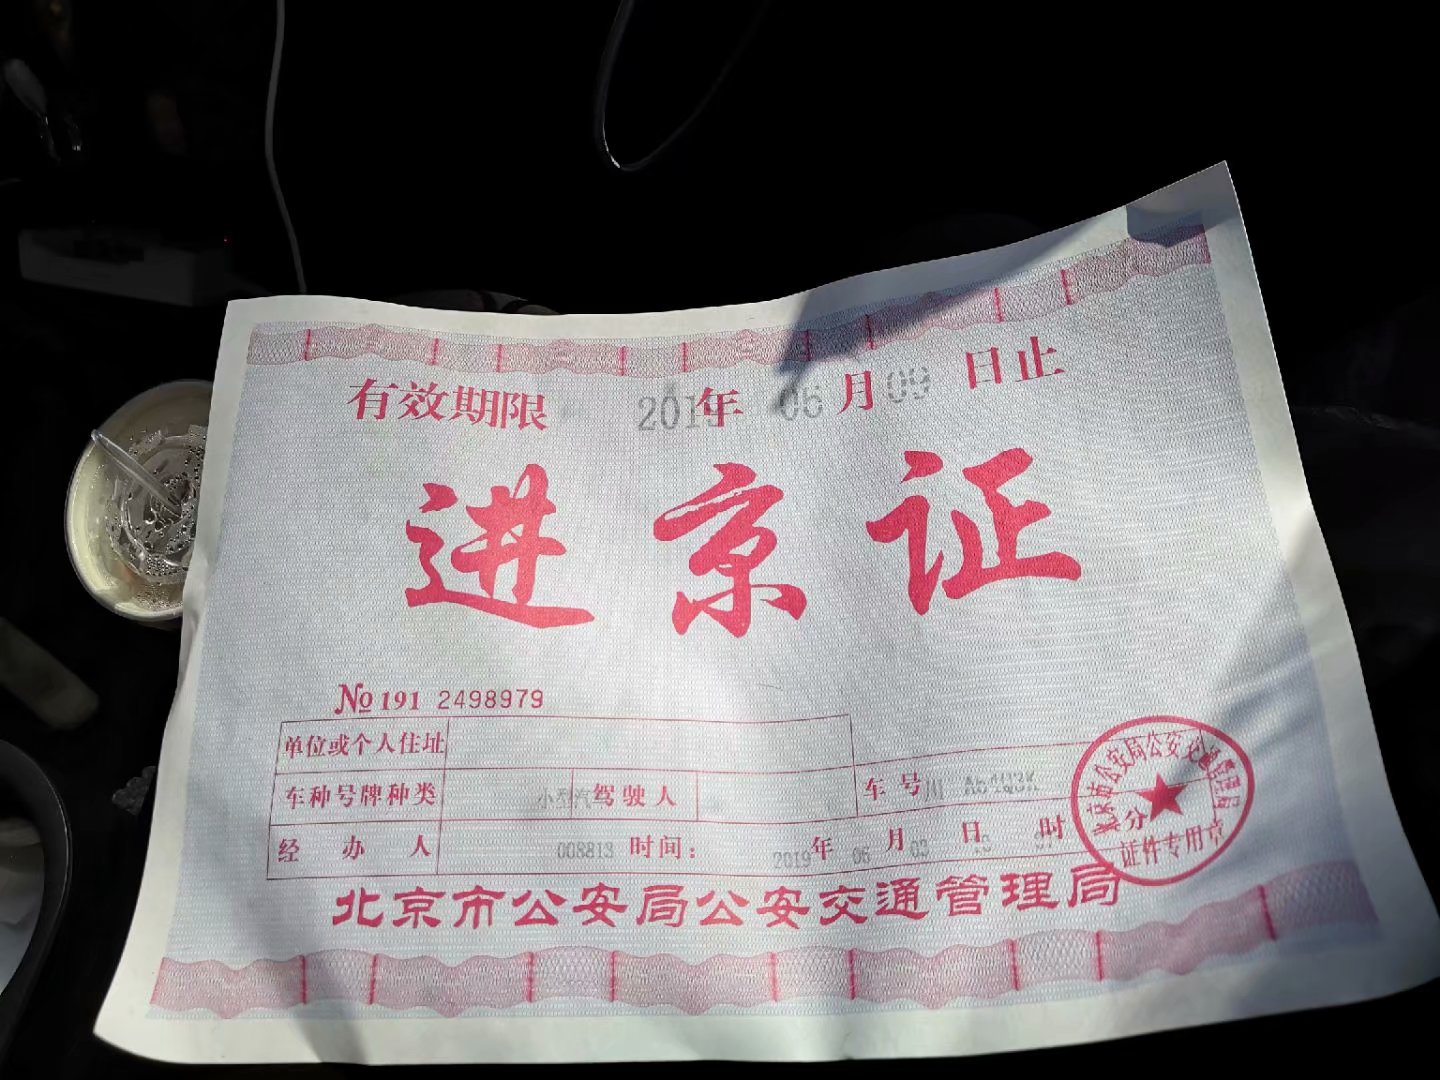 有效期限 2019年 06月09日止
进京证
№ 191 2498979
单位或个人住址
车种号牌种类 小型汽 驾驶人 车号 川
经办人 008813 时间： 2019年 06月 03日 时 分
北京市公安局公安交通管理局
北京市公安局公安交通管理局
证件专用章